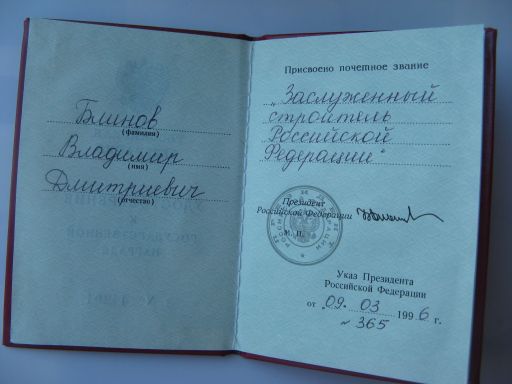 Блинов
(фамилия)
Владимир
(имя)
Дмитриевич
(отчество)
Присвоено почетное звание
„Заслуженный
строитель
Российской
Федерации“
Президент
Российской Федерации
М. П.
Указ Президента
Российской Федерации
от „09“ 03 1996 г.
№ 365